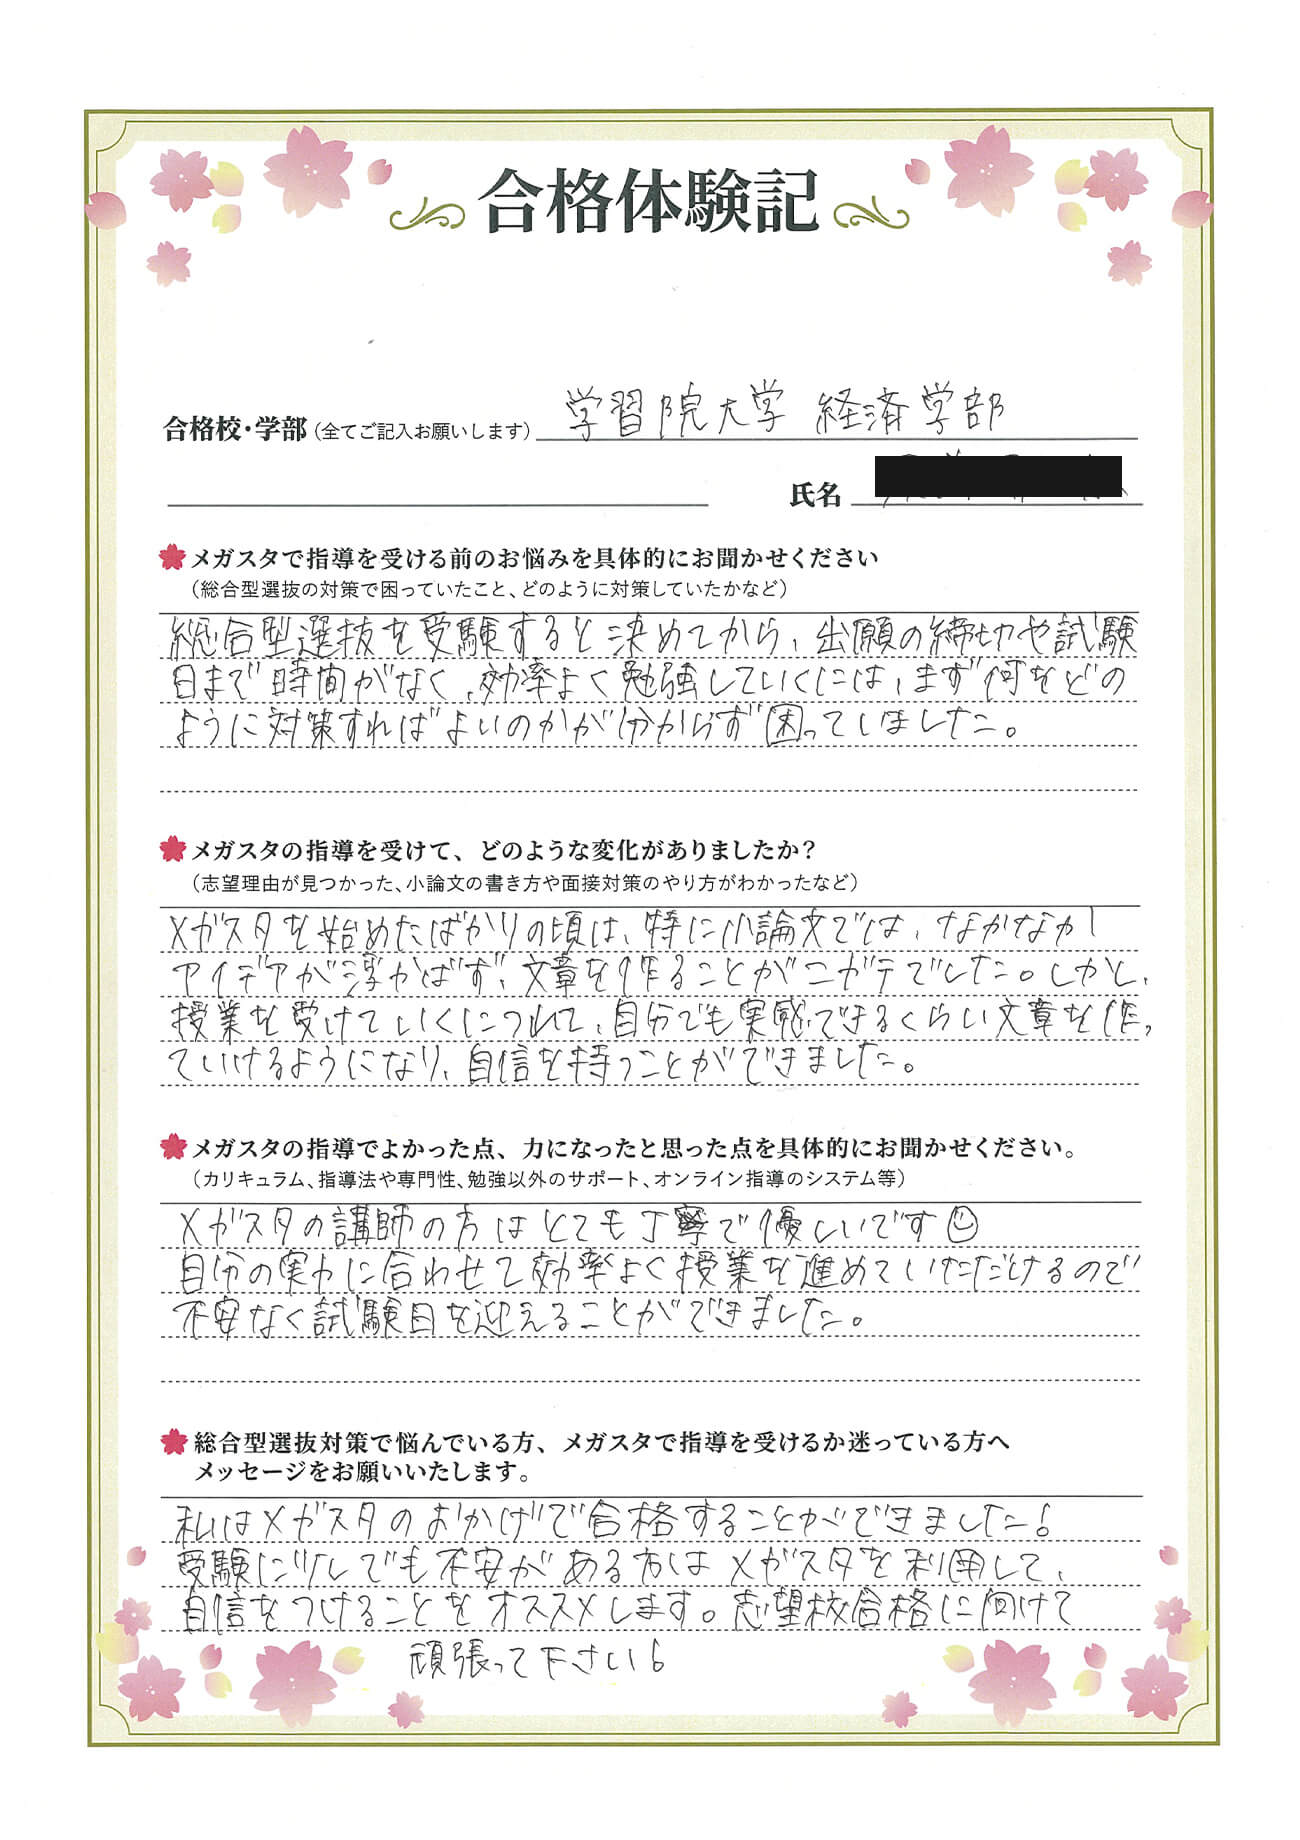 合格体験記
合格校・学部(全てご記入お願いします) 学習院大学 経済学部
氏名
メガスタで指導を受ける前のお悩みを具体的にお聞かせください
(総合型選抜の対策で困っていたこと、どのように対策していたかなど)
総合型選抜を受験すると決めてから、出願の締切や試験
日まで時間がなく、効率よく勉強していくには、まず何をどの
ように対策すればよいのかが分からず困っていました。
メガスタの指導を受けて、どのような変化がありましたか？
(志望理由が見つかった、小論文の書き方や面接対策のやり方がわかったなど)
メガスタを始めたばかりの頃は、特に小論文では、なかなか
アイデアが浮かばず、文章を作ることがニガテでした。しかし、
授業を受けていくにつれて、自分でも実感できるくらい文章を作っ
ていけるようになり、自信を持つことができました。
メガスタの指導でよかった点、力になったと思った点を具体的にお聞かせください。
(カリキュラム、指導法や専門性、勉強以外のサポート、オンライン指導のシステム等)
メガスタの講師の方はとても丁寧で優しいです☺
自分の実力に合わせて効率よく授業を進めていただけるので
不安なく試験日を迎えることができました。
総合型選抜対策で悩んでいる方、メガスタで指導を受けるか迷っている方へ
メッセージをお願いいたします。
私はメガスタのおかげで合格することができました！
受験に少しでも不安がある方はメガスタを利用して、
自信をつけることをオススメします。志望校合格に向けて
頑張って下さい！